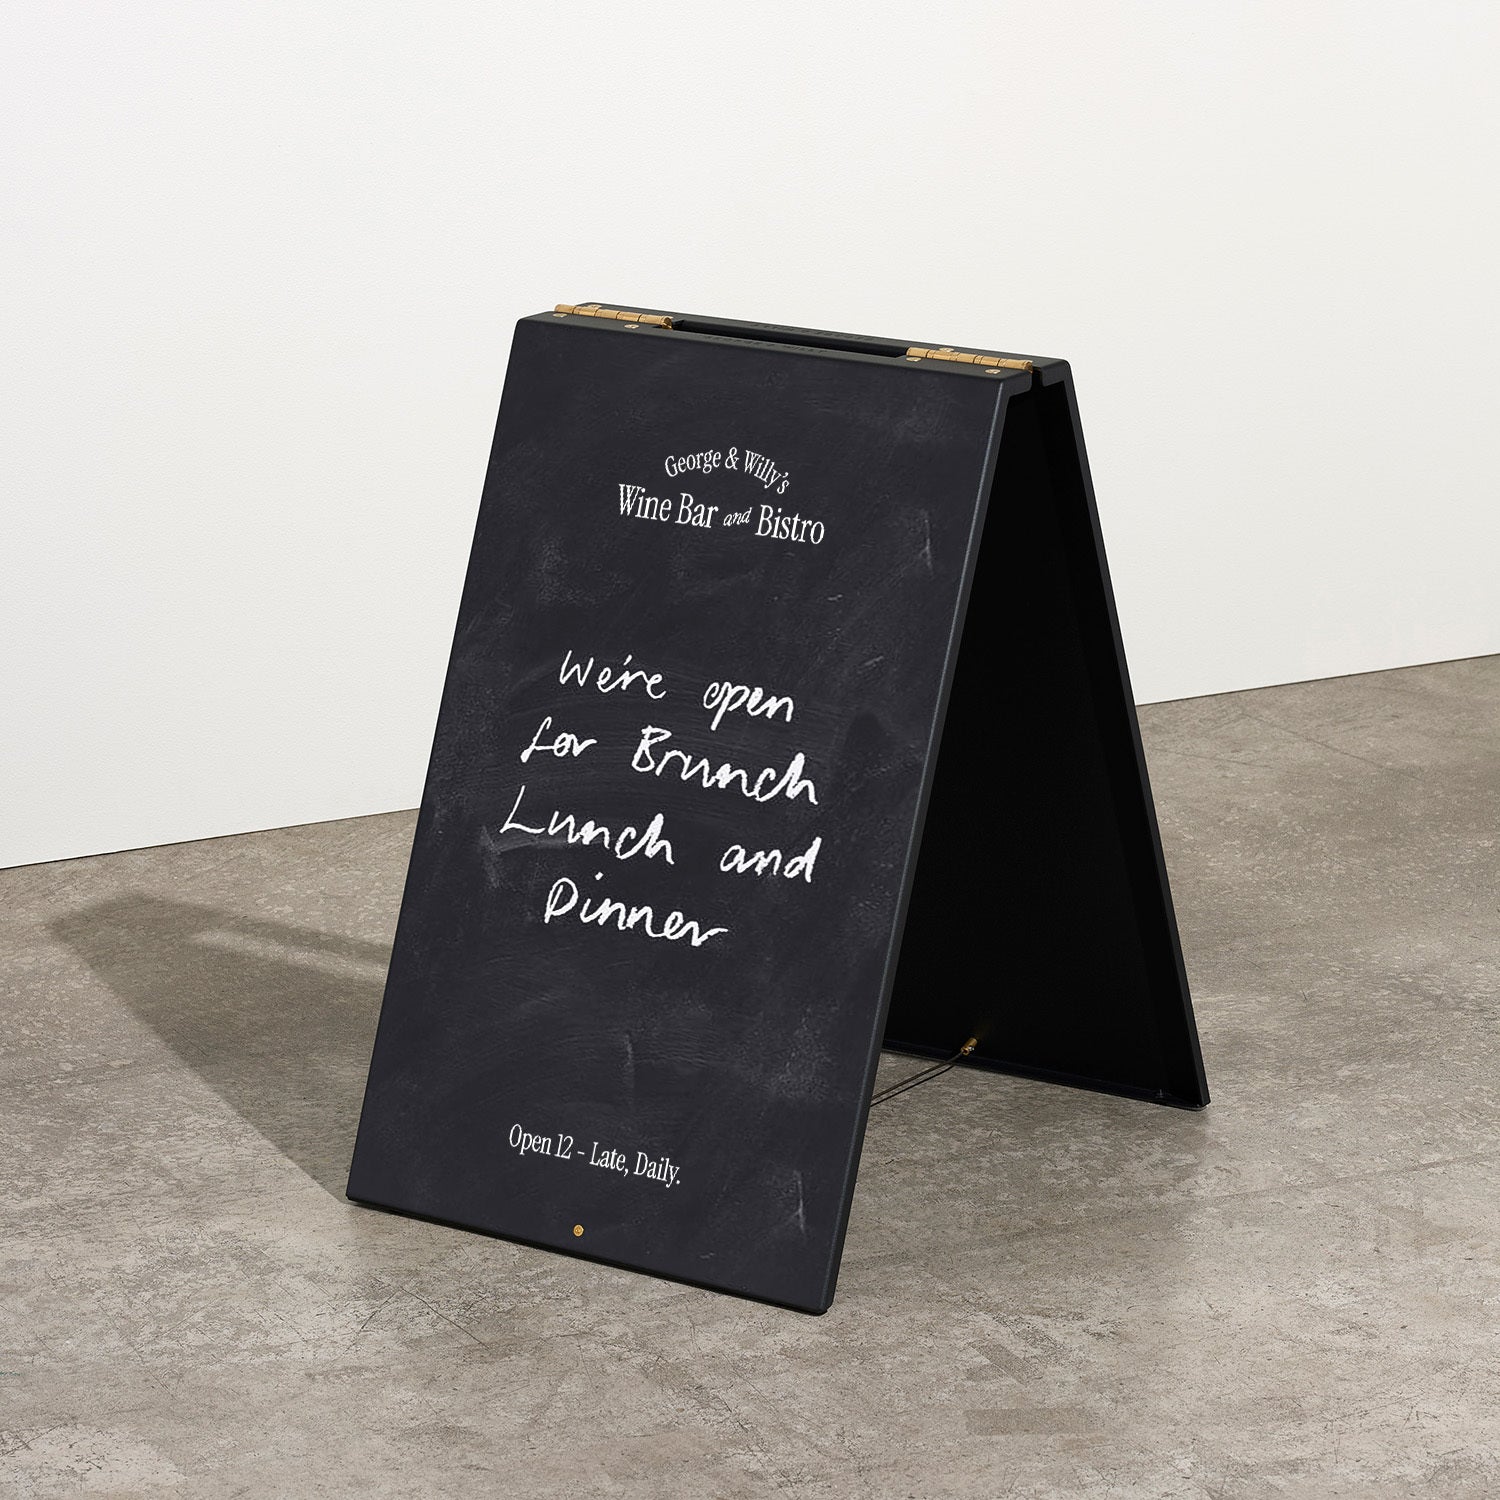 George & Willy's
Wine Bar and Bistro
We're open
for Brunch
Lunch and
Dinner
Open 12 - Late, Daily.